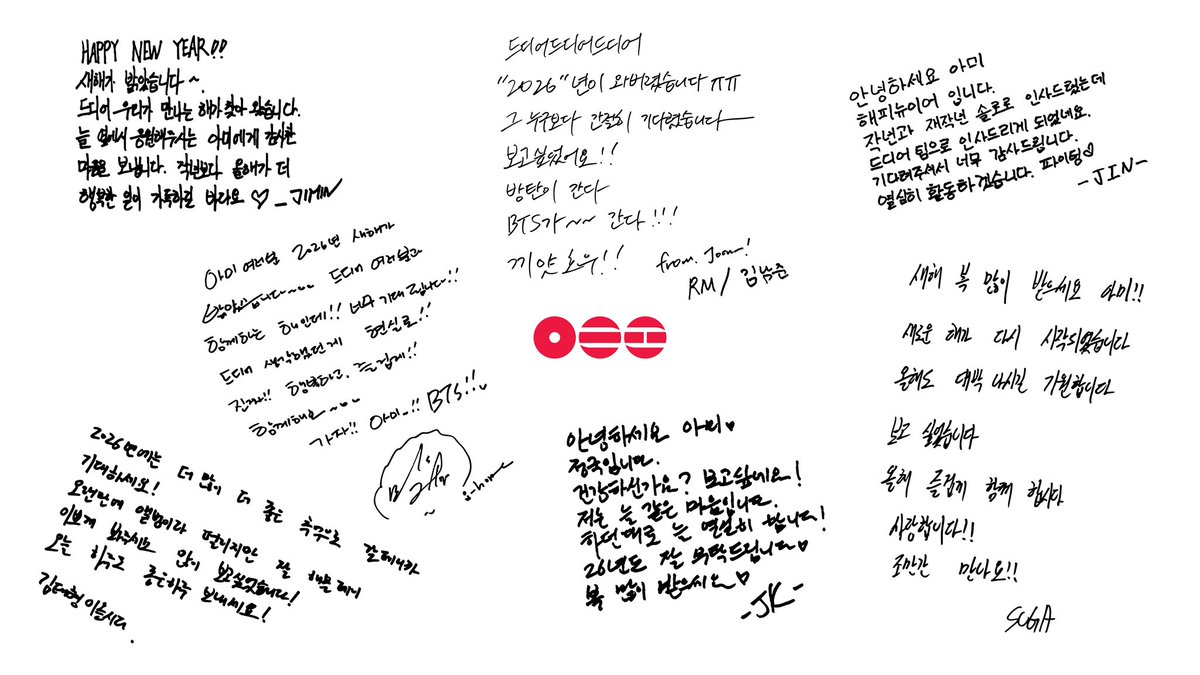 HAPPY NEW YEAR!!
새해가 밝았습니다~.
드디어 우리가 만나는 해가 찾아 왔습니다.
늘 옆에서 응원해주시는 아미에게 감사한
마음을 보냅니다. 작년보다 올해가 더
행복한 일이 가득하길 바라요 ♡ _JIMIN
드디어드디어드디어
"2026"년이 와버렸습니다 ㅠㅠ
그 누구보다 간절히 기다렸습니다
보고싶었어요!!
방탄이 간다
BTS가~~ 간다!!!
끼얏호우!!
from. Joon!
RM / 김남준
안녕하세요 아미
해피뉴이어 입니다.
작년과 재작년 솔로로 인사드렸는데
드디어 팀으로 인사드리게 되었네요.
기다려주셔서 너무 감사드립니다.
열심히 활동하겠습니다. 파이팅♡
-JIN-
아미 여러분 2026년 새해가
밝았습니다~~ 드디어 여러분과
함께하는 해인데!! 너무 기대됩니다!!
드디어 생각했던게 현실로!!
진짜!! 행복하고, 즐겁게!!
함께해요~~~
가자!! 아미~!! BTS!!
j-hope
새해 복 많이 받으세요 아미!!
새로운 해가 다시 시작되었습니다
올해도 대박 나시길 기원합니다
보고 싶었습니다
올해 즐겁게 함께 합시다
사랑합니다!!
조만간 만나요!!
SUGA
2026년에는 더 많이 더 좋은 추억으로 갈테니까
기대하세요!
오랜만에 앨범이라 떨리지만 잘 해볼테니
이쁘게 봐주시요 많이 보고싶었습니다!
오늘 하루도 좋은하루 보내세요!
김태형 이올시다.
안녕하세요 아미♥
정국입니다.
건강하신가요? 보고싶네요!
저는 늘 같은 마음입니다.
하던대로 늘 열심히 합니다!
26년도 잘 부탁드립니다♥
복 많이 받으시오♥
-JK-